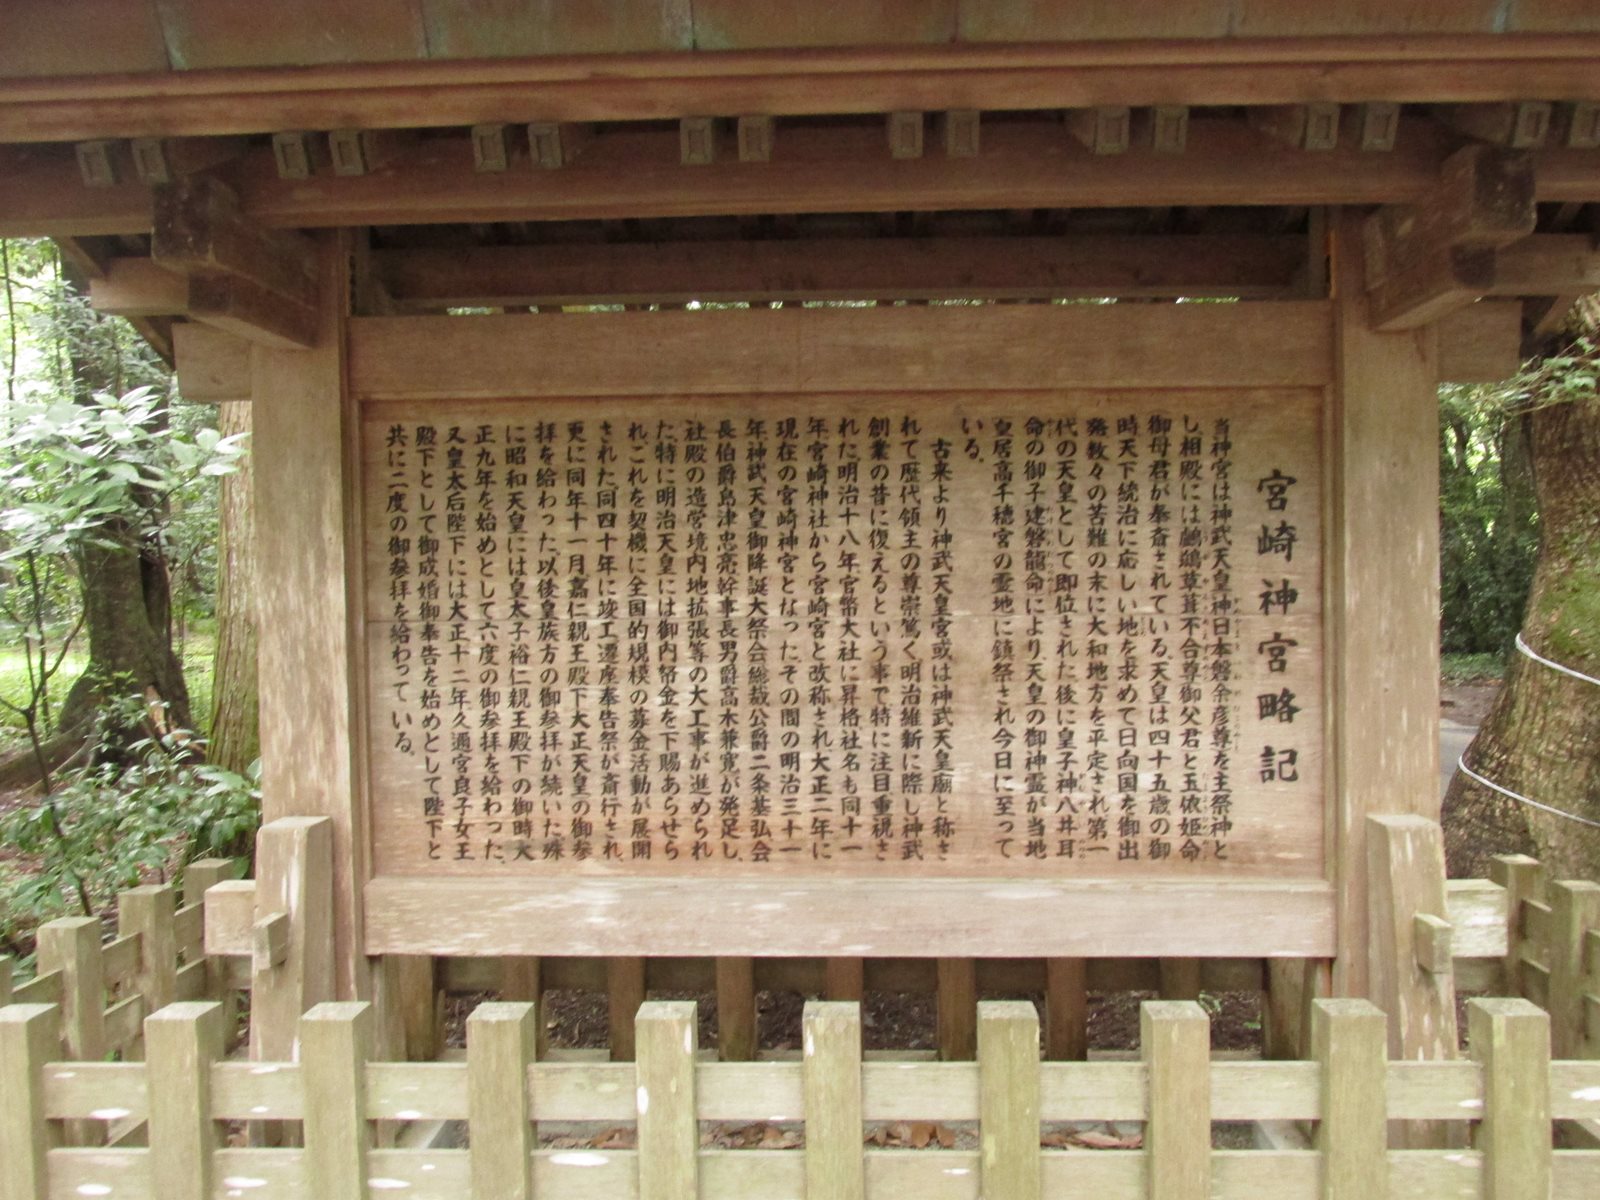 宮崎神宮略記
当神宮は神武天皇神日本磐余彦尊を主祭神と
し、相殿には鸕鷀草葺不合尊御父君と玉依姫命
御母君が奉斎されている。天皇は四十五歳の御
時天下統治に応しい地を求めて日向国を御出
発数々の苦難の末に大和地方を平定され第一
代の天皇として即位された後に皇子神八井耳
命の御子建磐龍命により、天皇の御神霊が当地
皇居高千穂宮の霊地に鎮祭され今日に至って
いる。
古来より神武天皇宮或は神武天皇廟と称さ
れて歴代領主の尊崇篤く明治維新に際し神武
創業の昔に復えるという事で特に注目重視さ
れた。明治十八年官幣大社に昇格社名も同十一
年宮崎神社から宮崎宮と改称され、大正二年に
現在の宮崎神宮となった。その間の明治三十一
年、神武天皇御降誕大祭会総裁公爵二条基弘、会
長伯爵島津忠亮幹事長男爵高木兼寛が発足し、
社殿の造営境内地拡張等の大工事が進められ
た。特に明治天皇には御内帑金を下賜あらせら
れ、これを契機に全国的規模の募金活動が展開
された。同四十年に竣工、遷座奉告祭が斎行され、
更に同年十一月嘉仁親王殿下大正天皇の御参
拝を給わった。以後皇族方の御参拝が続いた。殊
に昭和天皇には皇太子裕仁親王殿下の御時大
正九年を始めとして六度の御参拝を給わった。
又皇太后陛下には大正十二年久邇宮良子女王
殿下として御成婚御奉告を始めとして陛下と
共に二度の御参拝を給わっている。